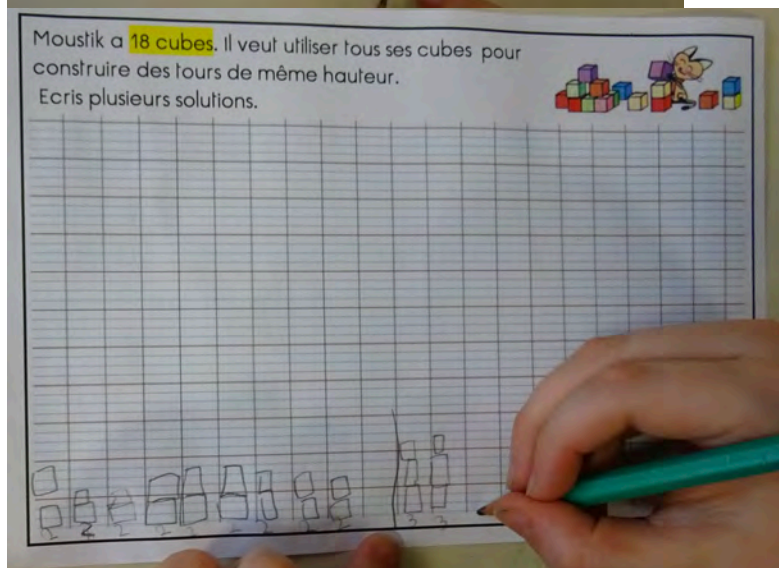 Moustik a 18 cubes. Il veut utiliser tous ses cubes pour
construire des tours de même hauteur.
Ecris plusieurs solutions.
2 2 2 2 2 2 2 2 2 3 3